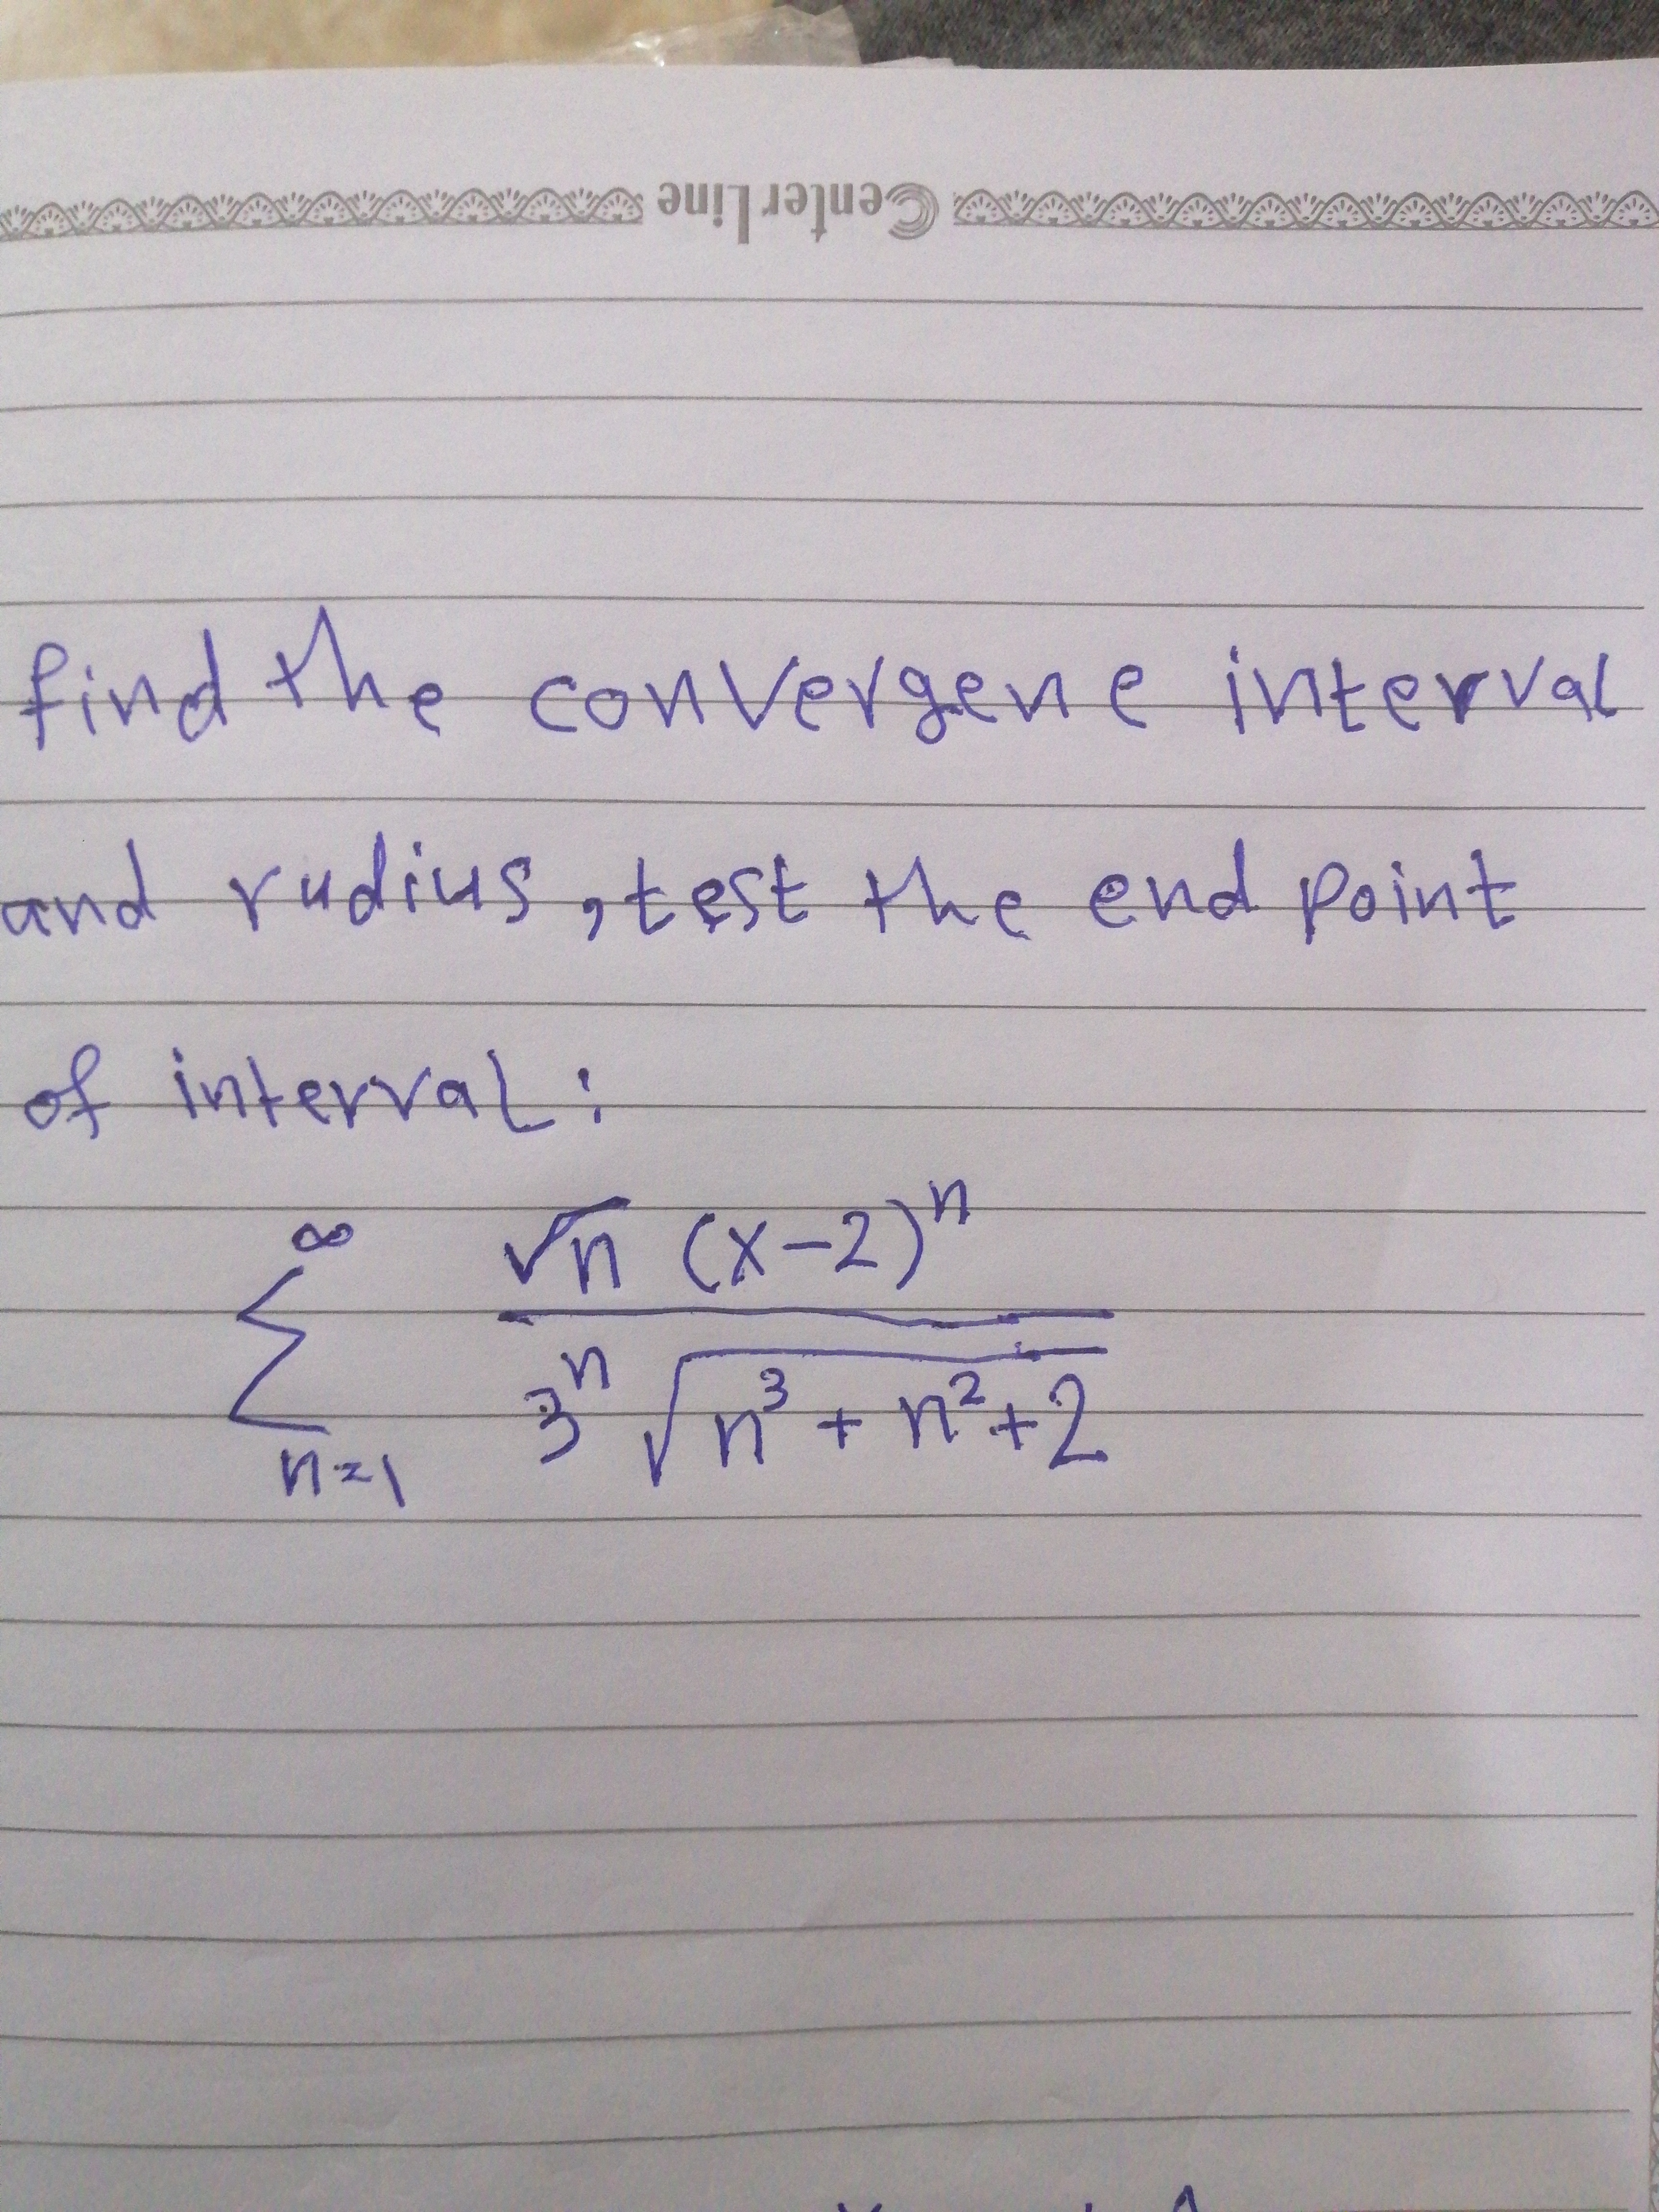 CenterLine
find the convergene interval
and rudius, test the end point
of interval:
∞ √n (x-2)^n
Σ
n=1 3^n √n^3 + n^2 + 2